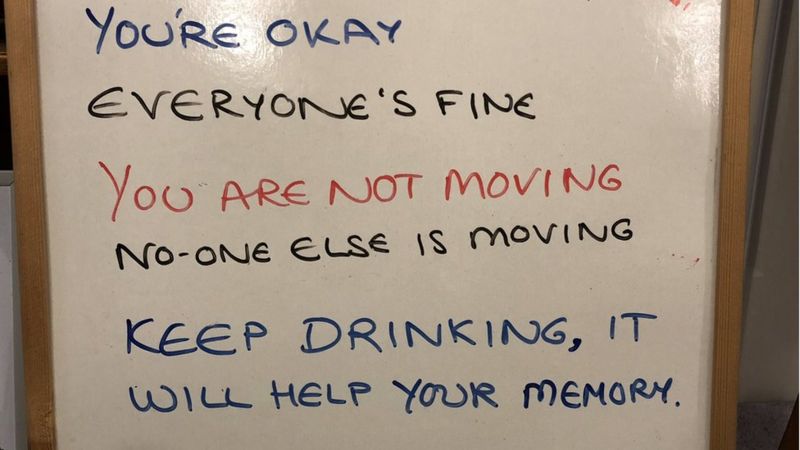 YOU'RE OKAY
EVERYONE'S FINE
YOU ARE NOT MOVING
NO-ONE ELSE IS MOVING
KEEP DRINKING, IT
WILL HELP YOUR MEMORY.